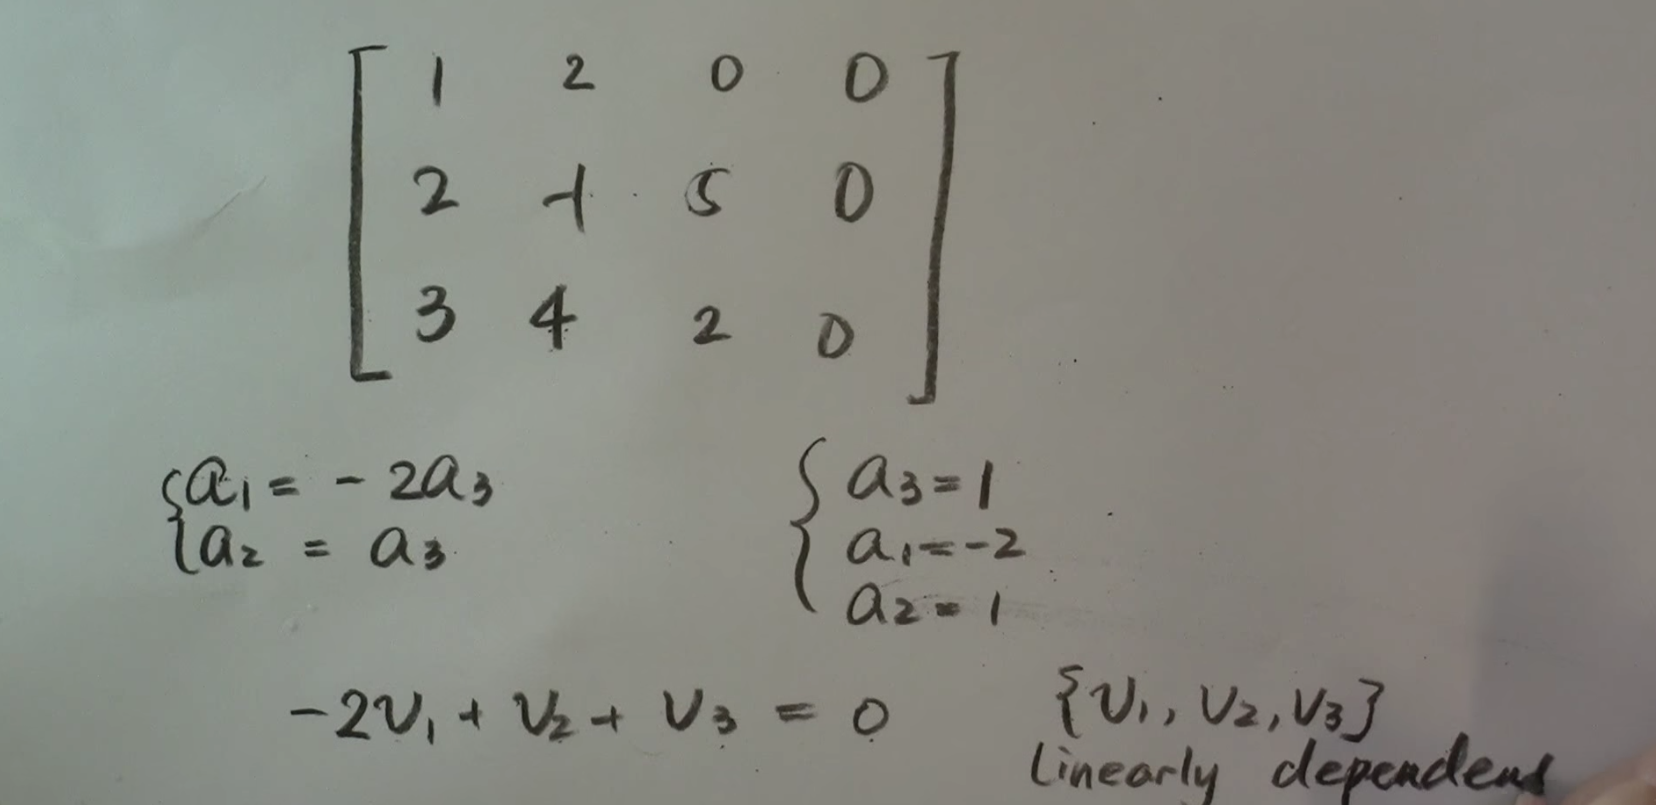 1 2 0 0
2 -1 5 0
3 4 2 0
a₁ = - 2a₃
a₂ = a₃
a₃ = 1
a₁ = -2
a₂ = 1
-2v₁ + v₂ + v₃ = 0
{v₁, v₂, v₃}
linearly dependent